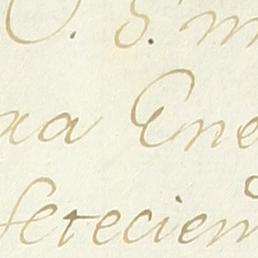 O. S. m
xa Ene
setecien